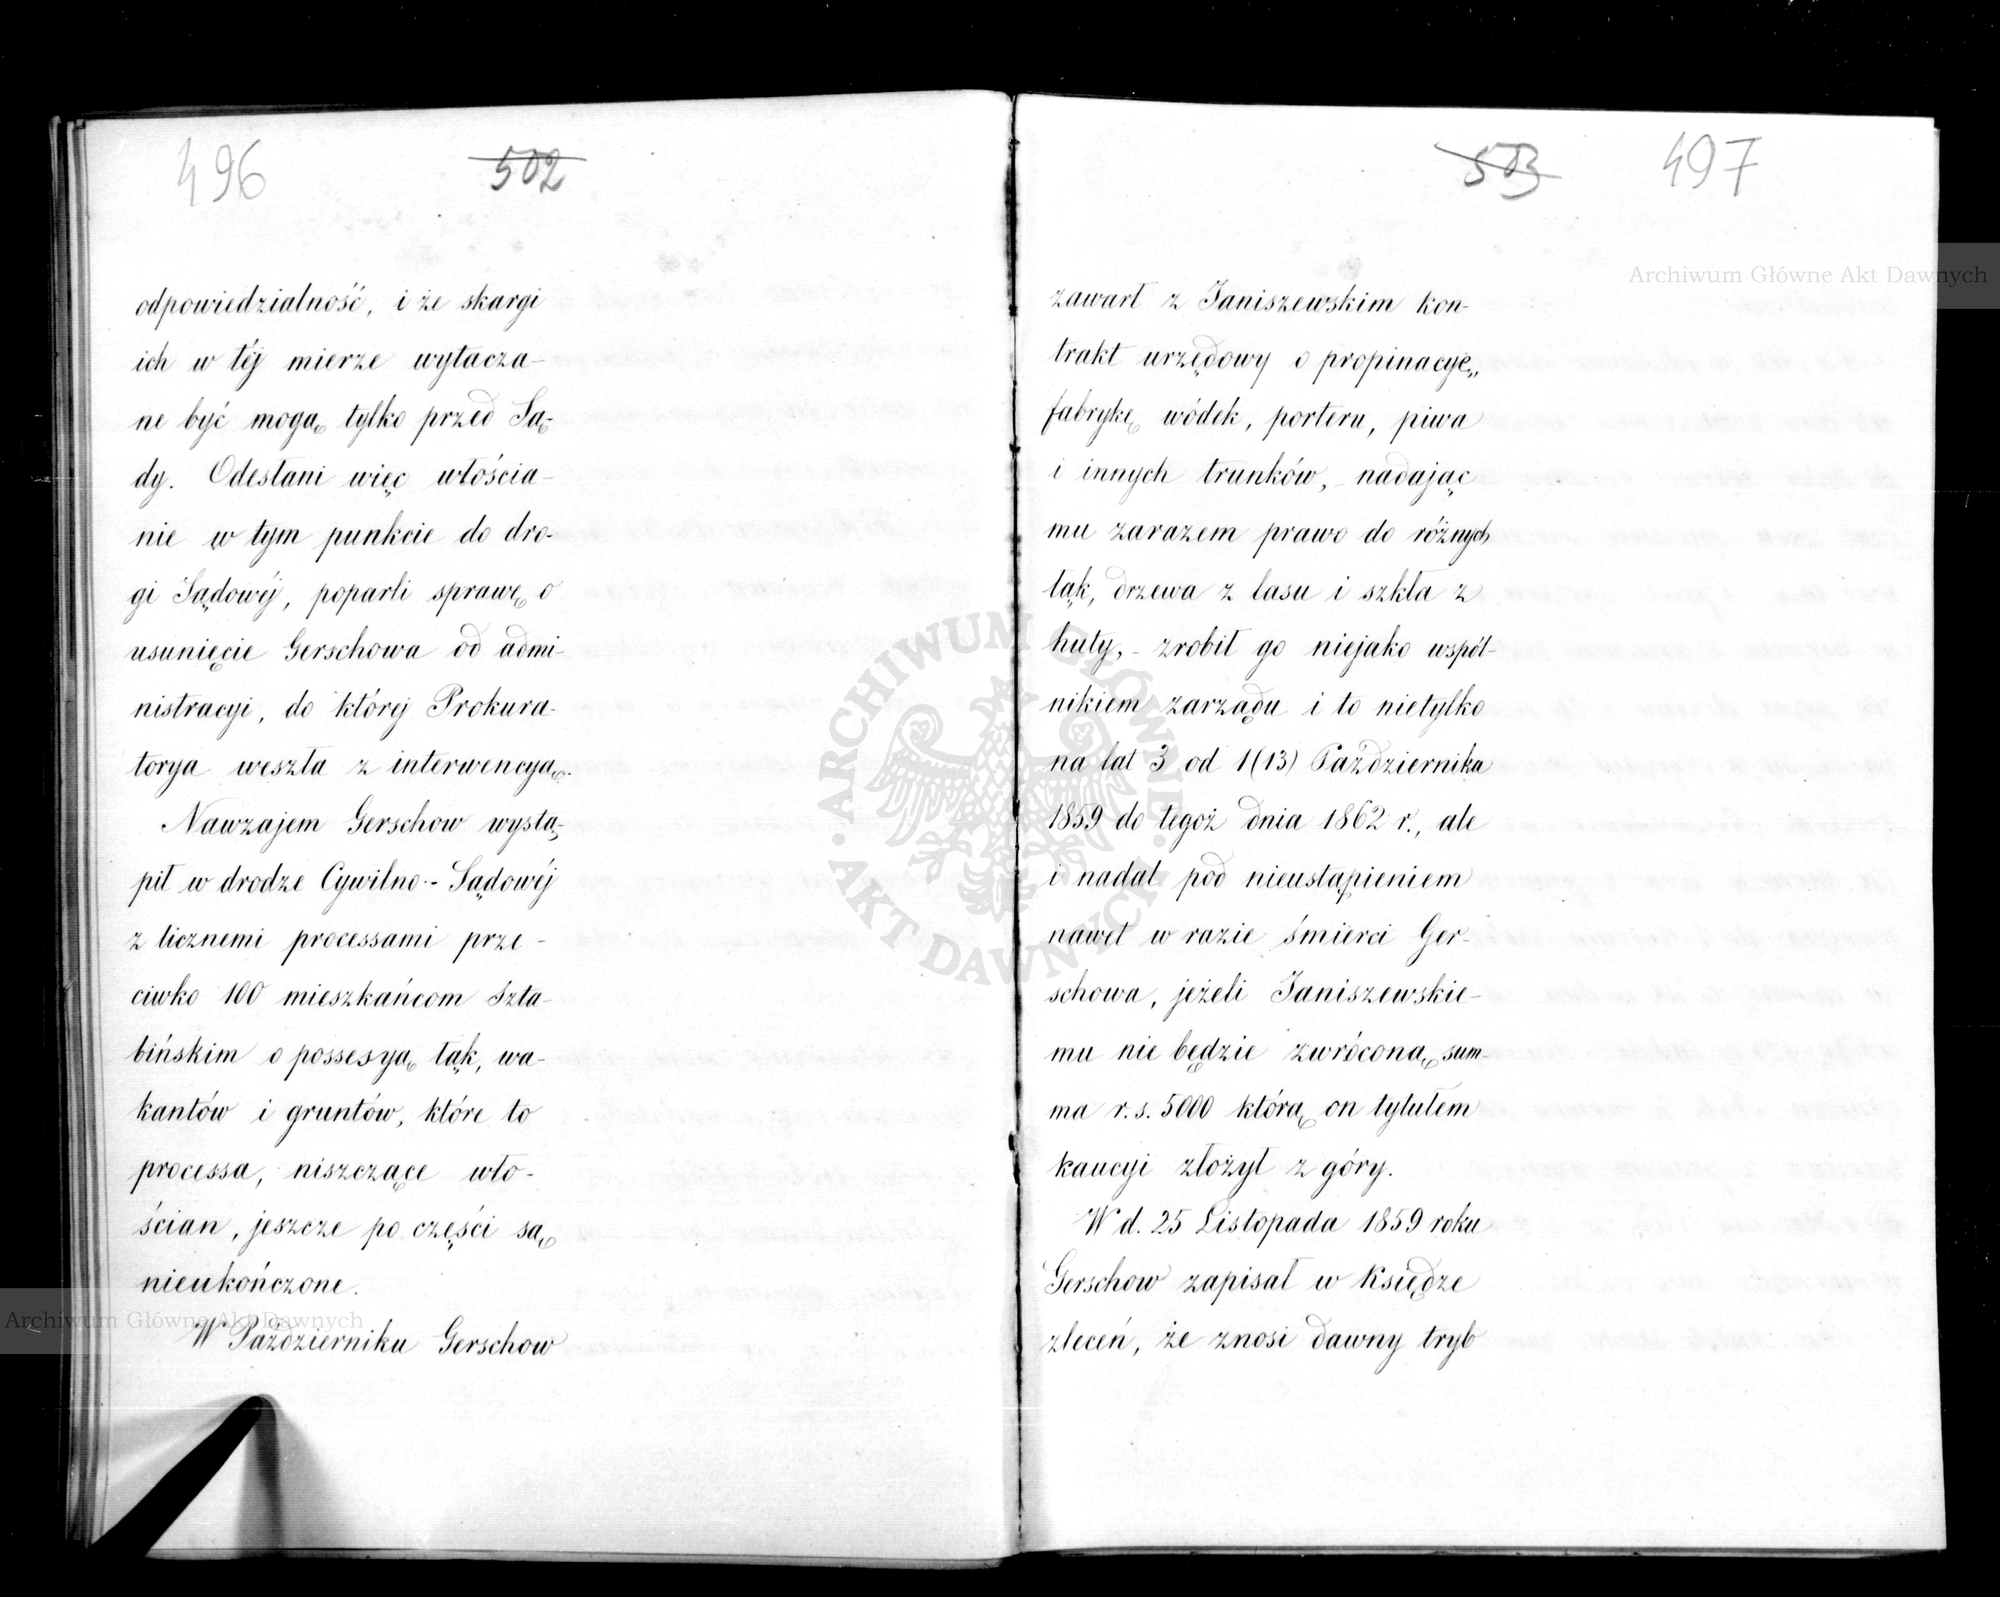 496
502
odpowiedzialność, i że skargi
ich w téj mierze wytacza-
ne być mogą tylko przed Są-
dy. Odesłani więc włościa-
nie w tym punkcie do dro-
gi Sądowéj, poparli sprawę o
usunięcie Gerschowa od admi-
nistracyi, do któréj Prokura-
torya weszła z interwencyą.
Nawzajem Gerschow wystą-
pił w drodze Cywilno-Sądowéj
z licznemi processami prze-
ciwko 100 mieszkańcom Szta-
bińskim o possesyą łąk, wa-
kantów i gruntów, które to
processa, niszczące wło-
ścian, jeszcze po części są
nieukończone.
W Październiku Gerschow
503
497
zawarł z Janiszewskim kon-
trakt urzędowy o propinacyę,
fabrykę wódek, porteru, piwa
i innych trunków, - nadając
mu zarazem prawo do różnych
łąk, drzewa z lasu i szkła z
huty, - zrobił go niejako wspól-
nikiem zarządu i to nietylko
na lat 3 od 1(13) Października
1859 do tegoż dnia 1862 r., ale
i nadal pod nieustąpieniem
nawet w razie śmierci Ger-
schowa, jeżeli Janiszewskie-
mu nie będzie zwróconą sum-
ma r.s. 5000 którą on tytułem
kaucyi złożył z góry.
W d. 25 Listopada 1859 roku
Gerschow zapisał w Księdze
zleceń, że znosi dawny tryb
Archiwum Główne Akt Dawnych
Archiwum Główne Akt Dawnych
ARCHIWUM GŁÓWNE AKT DAWNYCH